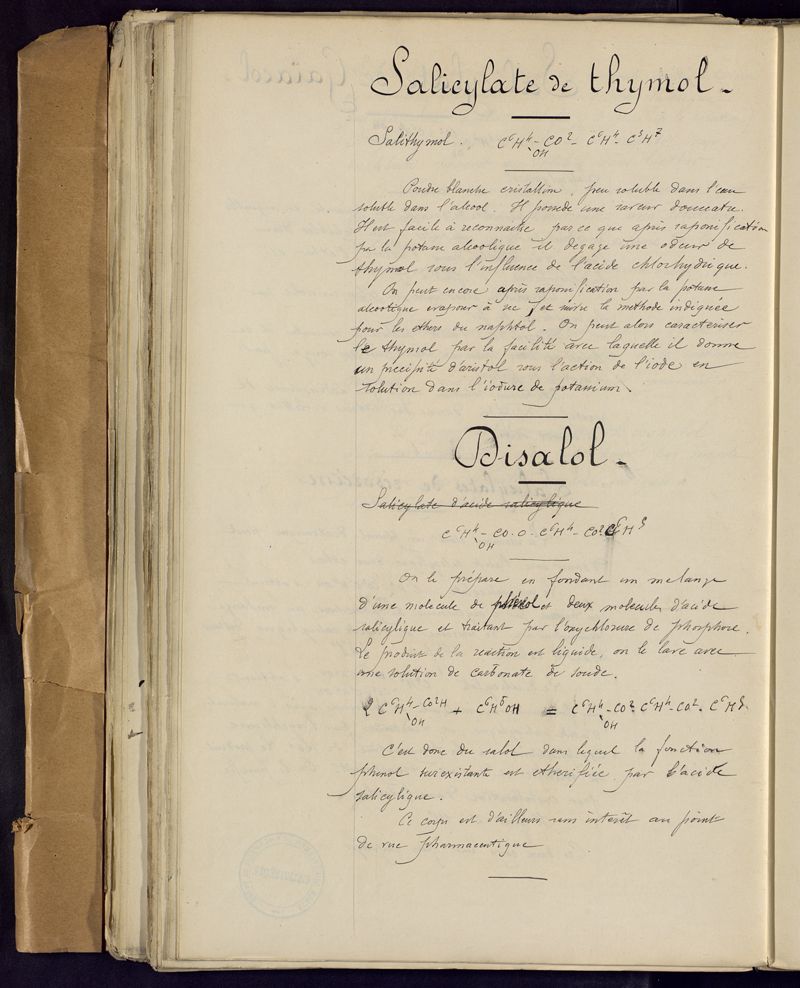 Salicylate de thymol.
Salithymol. C⁶H⁴ - CO² - C⁶H⁴ - C³H⁷
OH
Poudre blanche cristalline, peu soluble dans l'eau
soluble dans l'alcool. Il possède une saveur douceatre.
Il est facile à reconnaitre parce que après saponification
par la potasse alcoolique il dégage une odeur de
thymol sous l'influence de l'acide chlorhydrique.
On peut encore après saponification par la potasse
alcoolique evaporer à sec et suivre la methode indiquée
pour les ethers du naphtol. On peut alors caracteriser
le thymol par la facilité avec laquelle il donne
un precipité d'aristol sous l'action de l'iode en
solution dans l'iodure de potassium.
Disalol.
Salicylate d'acide salicylique
C⁶H⁴ - CO.O - C⁶H⁴ - CO² C⁶H⁵
OH
On le prépare en fondant un melange
d'une molecule de phénol et deux molecules d'acide
salicylique et traitant par l'oxychlorure de phosphore.
Le produit de la reaction est liquide, on le lave avec
une solution de carbonate de soude.
2 C⁶H⁴ - CO²H + C⁶H⁵OH = C⁶H⁴ - CO². C⁶H⁴ - CO². C⁶H⁵
OH OH
C'est donc du salol dans lequel la fonction
phenol surexistante est etherifiée par l'acide
salicylique.
Ce corps est d'ailleurs sans interêt au point
de vue pharmaceutique